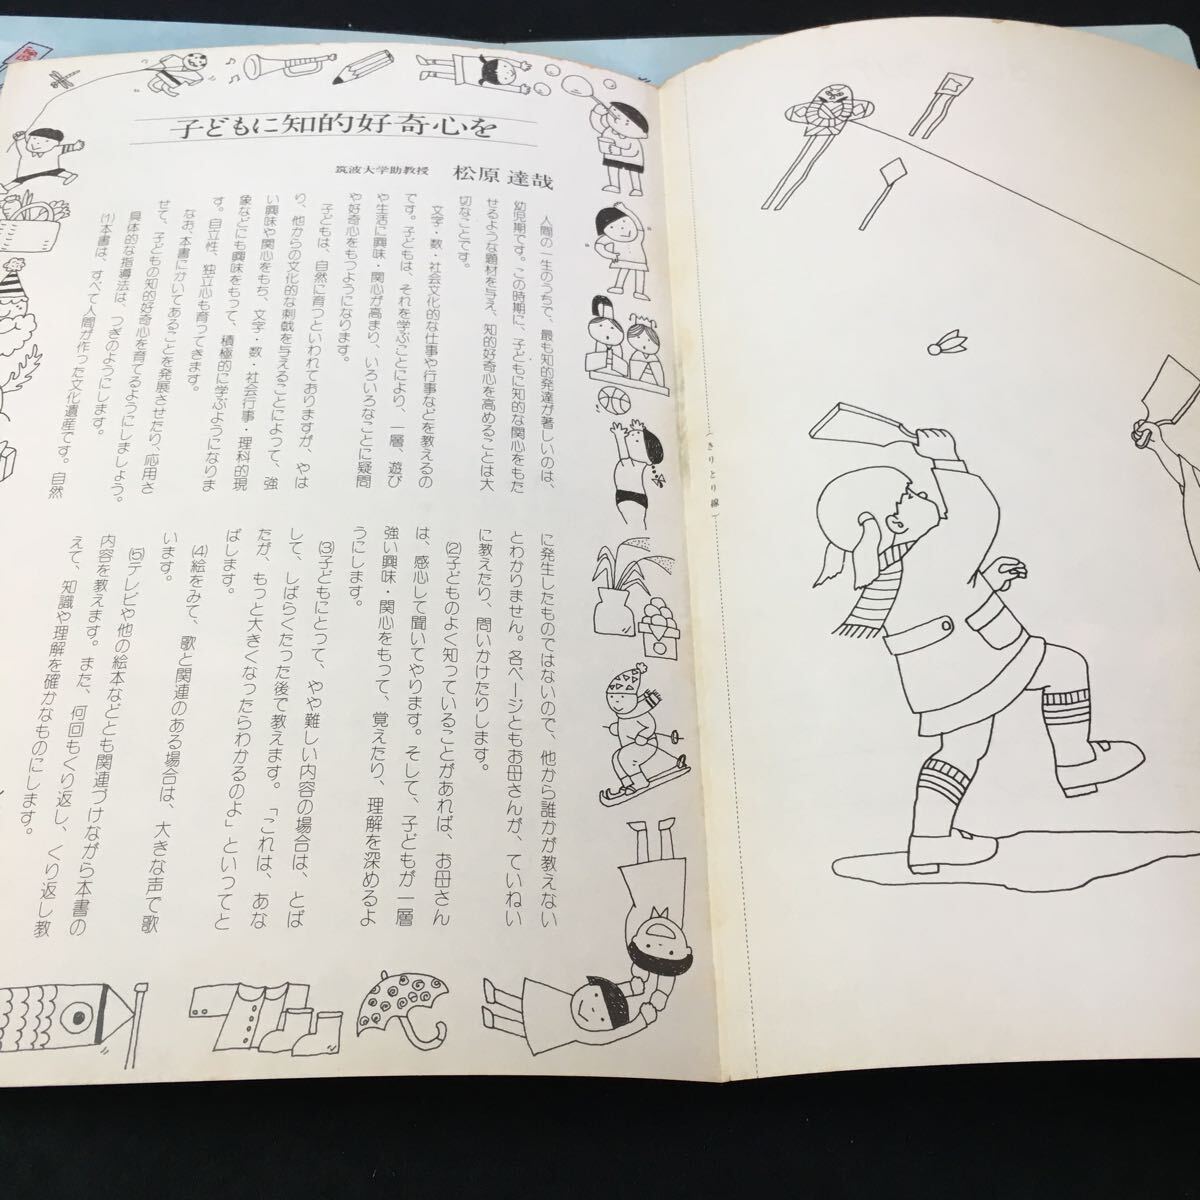 子どもに知的好奇心を
筑波大学助教授　松原達哉
人間の一生のうちで、最も知的発達が著しいのは、
幼児期です。この時期に、子どもに知的な関心をもた
せるような題材を与え、知的好奇心を高めることは大
切なことです。
文字・数・社会文化的な仕事や行事などを教えるの
です。子どもは、それを学ぶことにより、一層、遊び
や生活に興味・関心が高まり、いろいろなことに疑問
や好奇心をもつようになります。
子どもは、自然に育つといわれておりますが、やは
り、他からの文化的な刺戟を与えることによって、強
い興味や関心をもち、文字・数・社会行事・理科的現
象などにも興味をもって、積極的に学ぶようになりま
す。自立性、独立心も育ってきます。
なお、本書にかいてあることを発展させたり、応用さ
せて、子どもの知的好奇心を育てるようにしましょう。
具体的な指導法は、つぎのようにします。
(1)本書は、すべて人間が作った文化遺産です。自然
に発生したものではないので、他から誰かが教えない
とわかりません。各ページともお母さんが、ていねい
に教えたり、問いかけたりします。
(2)子どものよく知っていることがあれば、お母さん
は、感心して聞いてやります。そして、子どもが一層
強い興味・関心をもって、覚えたり、理解を深めるよ
うにします。
(3)子どもにとって、やや難しい内容の場合は、とば
して、しばらくたった後で教えます。「これは、あな
たが、もっと大きくなったらわかるのよ」といってと
ばします。
(4)絵をみて、歌と関連のある場合は、大きな声で歌
います。
(5)テレビや他の絵本などとも関連づけながら本書の
内容を教えます。また、何回もくり返し、くり返し教
えて、知識や理解を確かなものにします。
（きりとり線）